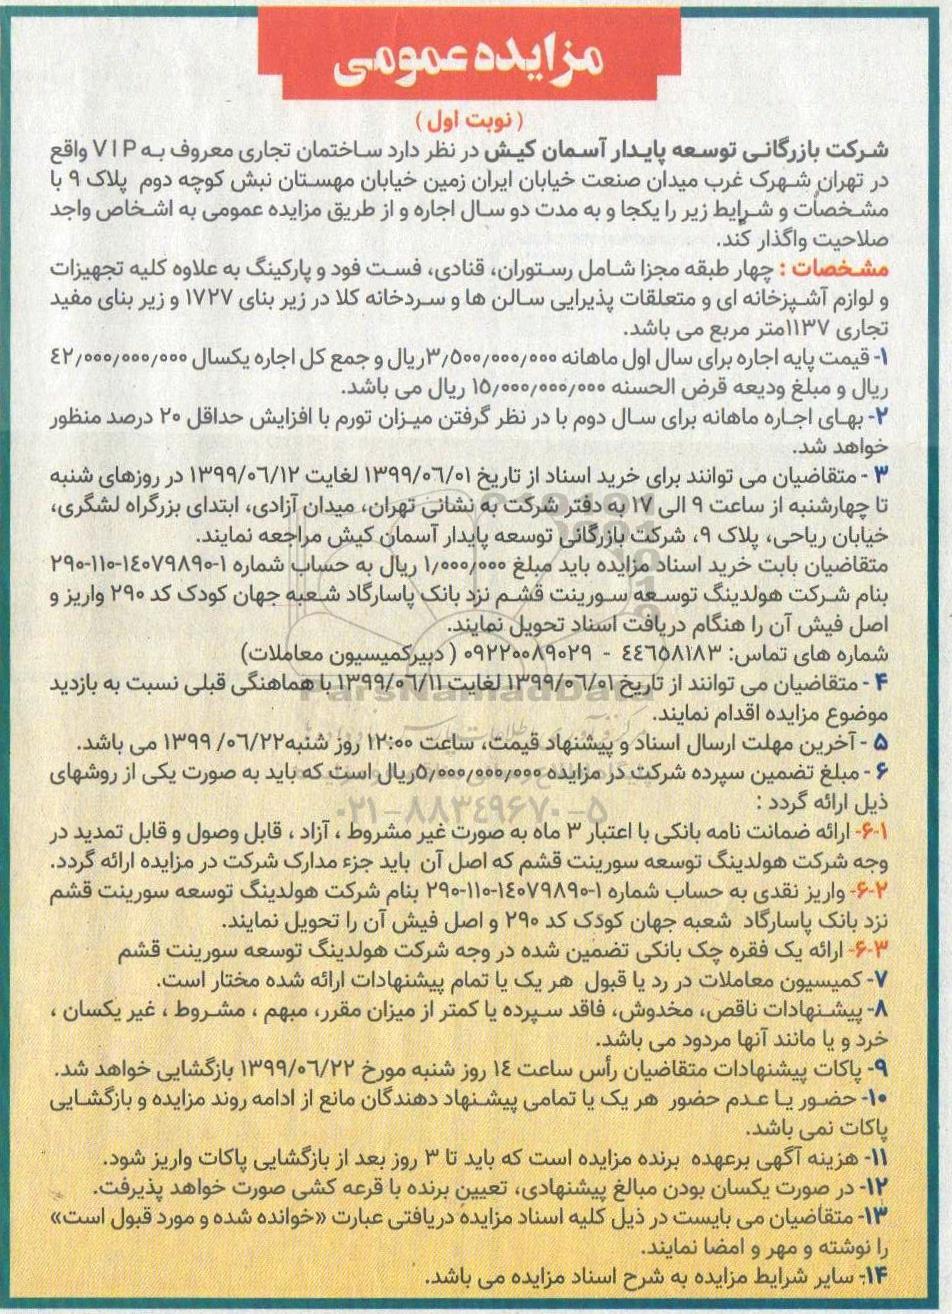 مزایده عمومی
( نوبت اول )
شرکت بازرگانی توسعه پایدار آسمان کیش در نظر دارد ساختمان تجاری معروف به VIP واقع
در تهران شهرک غرب میدان صنعت خیابان ایران زمین خیابان مهستان نبش کوچه دوم پلاک ۹ با
مشخصات و شرایط زیر را یکجا و به مدت دو سال اجاره و از طریق مزایده عمومی به اشخاص واجد
صلاحیت واگذار کند.
مشخصات : چهار طبقه مجزا شامل رستوران، قنادی، فست فود و پارکینگ به علاوه کلیه تجهیزات
و لوازم آشپزخانه ای و متعلقات پذیرایی سالن ها و سردخانه کلا در زیر بنای ۱۷۲۷ و زیر بنای مفید
تجاری ۱۱۳۷متر مربع می باشد.
۱- قیمت پایه اجاره برای سال اول ماهانه ۳٫۵۰۰٫۰۰۰٫۰۰۰ریال و جمع کل اجاره یکسال ۴۲٫۰۰۰٫۰۰۰٫۰۰۰
ریال و مبلغ ودیعه قرض الحسنه ۱۵٫۰۰۰٫۰۰۰٫۰۰۰ ریال می باشد.
۲- بهای اجاره ماهانه برای سال دوم با در نظر گرفتن میزان تورم با افزایش حداقل ۲۰ درصد منظور
خواهد شد.
۳ - متقاضیان می توانند برای خرید اسناد از تاریخ ۱۳۹۹/۰۶/۰۱ لغایت ۱۳۹۹/۰۶/۱۲ در روزهای شنبه
تا چهارشنبه از ساعت ۹ الی ۱۷ به دفتر شرکت به نشانی تهران، میدان آزادی، ابتدای بزرگراه لشگری،
خیابان ریاحی، پلاک ۹، شرکت بازرگانی توسعه پایدار آسمان کیش مراجعه نمایند.
متقاضیان بابت خرید اسناد مزایده باید مبلغ ۱٫۰۰۰٫۰۰۰ ریال به حساب شماره ۱-۱۴۰۷۹۸۹۰-۱۱۰-۲۹۰
بنام شرکت هولدینگ توسعه سورینت قشم نزد بانک پاسارگاد شعبه جهان کودک کد ۲۹۰ واریز و
اصل فیش آن را هنگام دریافت اسناد تحویل نمایند.
شماره های تماس: ۴۴۶۵۸۱۸۳ - ۰۹۲۲۰۰۸۹۰۲۹ ( دبیرکمیسیون معاملات)
۴ - متقاضیان می توانند از تاریخ ۱۳۹۹/۰۶/۰۱ لغایت ۱۳۹۹/۰۶/۱۱ با هماهنگی قبلی نسبت به بازدید
ParsNamadData
موضوع مزایده اقدام نمایند.
۵ - آخرین مهلت ارسال اسناد و پیشنهاد قیمت، ساعت ۱۲:۰۰ روز شنبه۰۶/۲۲/ ۱۳۹۹ می باشد.
۶ - مبلغ تضمین سپرده شرکت در مزایده ۵٫۰۰۰٫۰۰۰٫۰۰۰ریال است که باید به صورت یکی از روشهای
ذیل ارائه گردد :
۰۲۱-۸۸۳۴۹۶۷۰-۵
۶-۱- ارائه ضمانت نامه بانکی با اعتبار ۳ ماه به صورت غیر مشروط ، آزاد ، قابل وصول و قابل تمدید در
وجه شرکت هولدینگ توسعه سورینت قشم که اصل آن باید جزء مدارک شرکت در مزایده ارائه گردد.
۶-۲- واریز نقدی به حساب شماره ۱-۱۴۰۷۹۸۹۰-۱۱۰-۲۹۰ بنام شرکت هولدینگ توسعه سورینت قشم
نزد بانک پاسارگاد شعبه جهان کودک کد ۲۹۰ و اصل فیش آن را تحویل نمایند.
۶-۳- ارائه یک فقره چک بانکی تضمین شده در وجه شرکت هولدینگ توسعه سورینت قشم
۷- کمیسیون معاملات در رد یا قبول هر یک یا تمام پیشنهادات ارائه شده مختار است.
۸- پیشنهادات ناقص، مخدوش، فاقد سپرده یا کمتر از میزان مقرر، مبهم ، مشروط ، غیر یکسان ،
خرد و یا مانند آنها مردود می باشد.
۹- پاکات پیشنهادات متقاضیان رأس ساعت ۱۴ روز شنبه مورخ ۱۳۹۹/۰۶/۲۲ بازگشایی خواهد شد.
۱۰- حضور یا عدم حضور هر یک یا تمامی پیشنهاد دهندگان مانع از ادامه روند مزایده و بازگشایی
پاکات نمی باشد.
۱۱- هزینه آگهی برعهده برنده مزایده است که باید تا ۳ روز بعد از بازگشایی پاکات واریز شود.
۱۲- در صورت یکسان بودن مبالغ پیشنهادی، تعیین برنده با قرعه کشی صورت خواهد پذیرفت.
۱۳- متقاضیان می بایست در ذیل کلیه اسناد مزایده دریافتی عبارت «خوانده شده و مورد قبول است»
را نوشته و مهر و امضا نمایند.
۱۴- سایر شرایط مزایده به شرح اسناد مزایده می باشد.